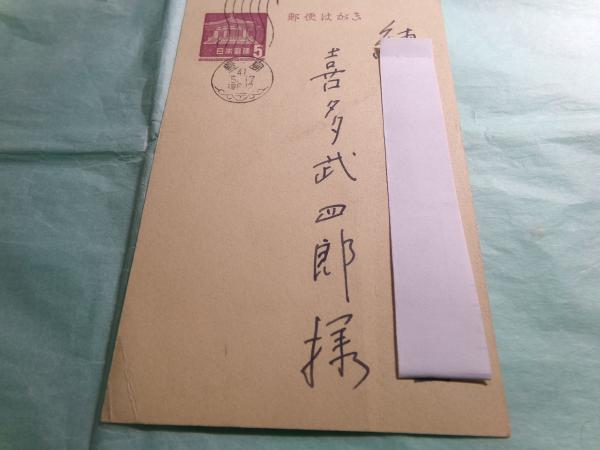 郵便はがき
日本郵便
5
41
喜多武四郎様